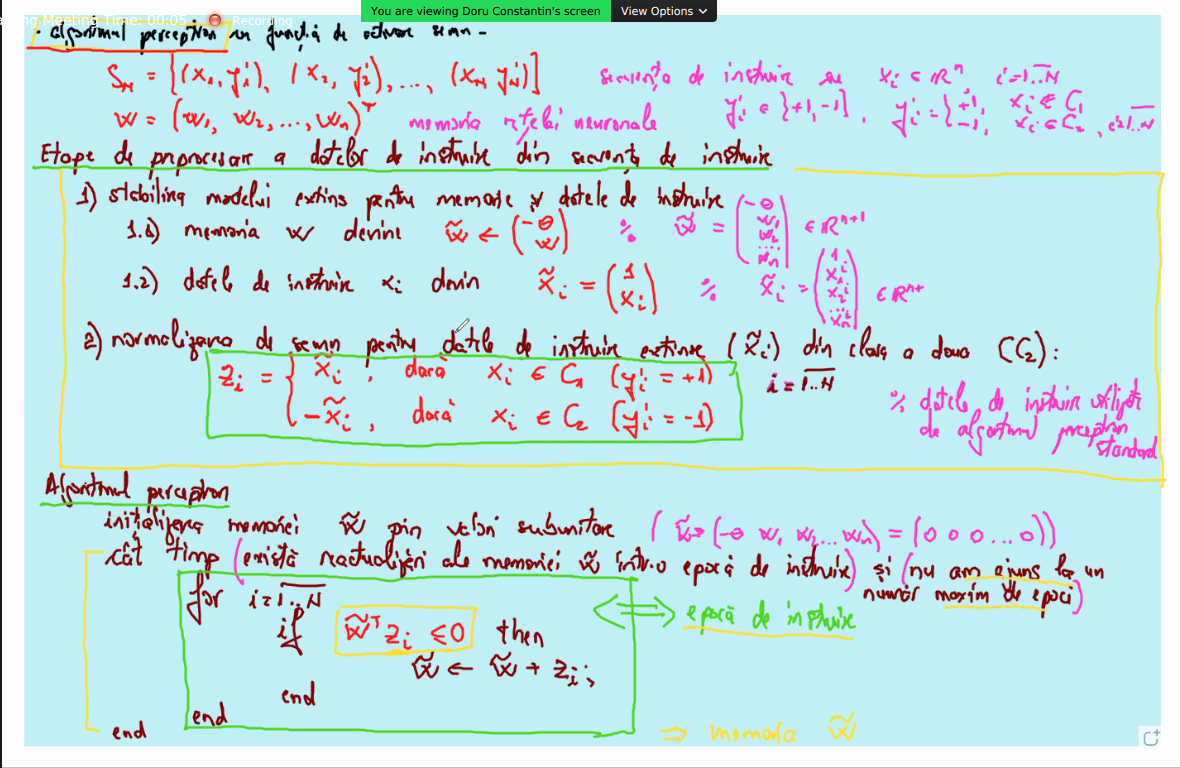 You are viewing Doru Constantin's screen View Options
Meeting Time: 00:05 Recording
- algoritmul perceptron cu funcția de activare semn -
S_N = {(x_1, y_1), (x_2, y_2), ..., (x_N, y_N)} secvența de instruire cu x_i ∈ R^n i=1..N
w = (w_1, w_2, ..., w_n)^T memoria rețelei neuronale y_i ∈ {+1, -1}, y_i = {+1, x_i ∈ C_1
-1, x_i ∈ C_2, i=1..N
Etape de preprocesare a datelor de instruire din secvența de instruire
1) stabilirea modelului extins pentru memorie și datele de instruire
1.1) memoria w devine w̃ ← (-θ w) % w̃ = (-θ w_1 w_2 ... w_n) ∈ R^{n+1}
1.2) datele de instruire x_i devin x̃_i = (1 x_i) % x̃_i = (1 x_1^i x_2^i ... x_n^i) ∈ R^{n+1}
2) normalizarea de semn pentru datele de instruire extinse (x̃_i) din clasa a doua (C_2):
z_i = { x̃_i, dacă x_i ∈ C_1 (y_i = +1) i = 1..N
-x̃_i, dacă x_i ∈ C_2 (y_i = -1)
% datele de instruire utilizate
de algoritmul perceptron
standard
Algoritmul perceptron
inițializarea memoriei w̃ prin valori subunitare (w̃ → (-θ w_1 w_2 ... w_n) = (0 0 0 ... 0))
cât timp (există reactualizări ale memoriei w̃ într-o epocă de instruire) și (nu am ajuns la un
număr maxim de epoci)
for i = 1..N
⟺ epocă de instruire
if w̃^T z_i ≤ 0 then
w̃ ← w̃ + z_i;
end
end
end
⇒ memoria w̃